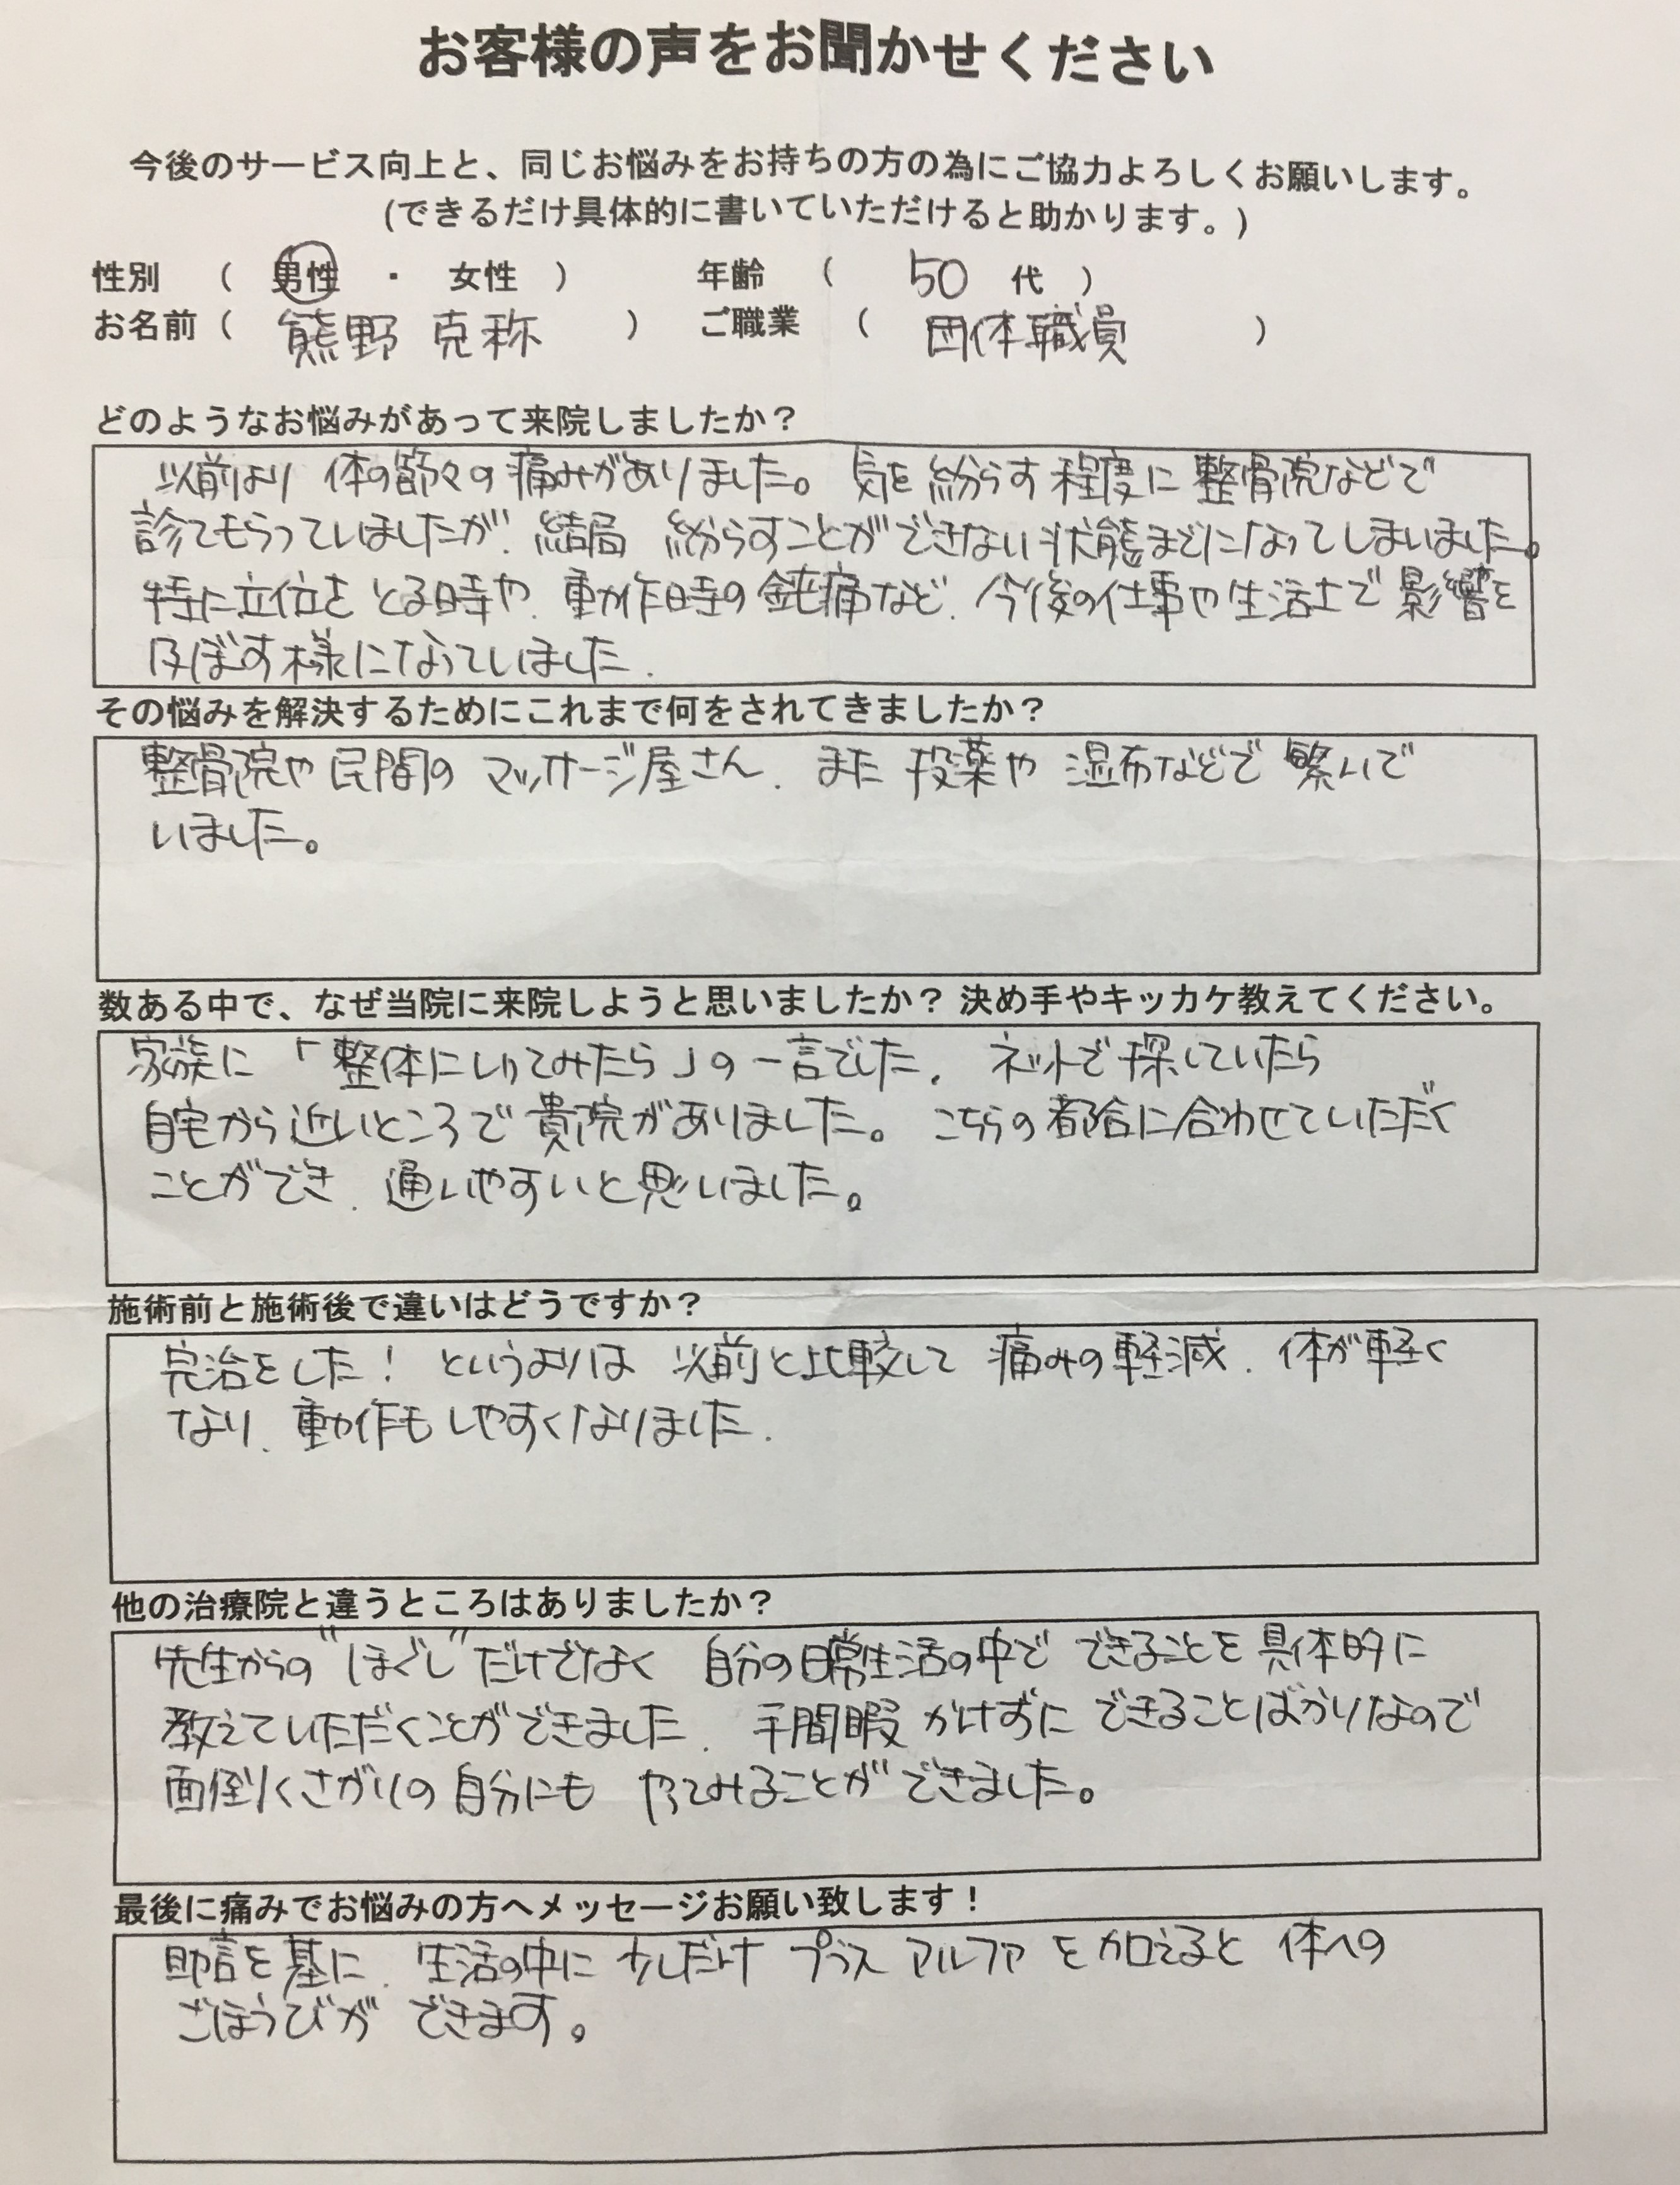 お客様の声をお聞かせください
今後のサービス向上と、同じお悩みをお持ちの方の為にご協力よろしくお願いします。
(できるだけ具体的に書いていただけると助かります。)
性別 ( 男性 ・ 女性 ) 年齢 ( 50 代 )
お名前 ( 熊野 克称 ) ご職業 ( 団体職員 )
どのようなお悩みがあって来院しましたか？
以前より 体の節々の痛みがありました。 気を紛らす程度に整骨院などで
診てもらっていましたが、結局 紛らすことができない状態までになってしまいました。
特に立位をとる時や、動作時の鈍痛など、今後の仕事や生活上で影響を
及ぼす様になっていました.
その悩みを解決するためにこれまで何をされてきましたか？
整骨院や民間のマッサージ屋さん、また 投薬や 湿布などで 繋いで
いました。
数ある中で、なぜ当院に来院しようと思いましたか？ 決め手やキッカケ教えてください。
家族に「整体にいってみたら」の一言でした. ネットで探していたら
自宅から近いところで貴院がありました。こちらの都合に合わせていただく
ことができ、通いやすいと思いました。
施術前と施術後で違いはどうですか？
完治をした！ というよりは 以前と比較して 痛みの軽減、体が軽く
なり、動作もしやすくなりました.
他の治療院と違うところはありましたか？
先生からの"ほぐし"だけでなく 自分の日常生活の中で できることを具体的に
教えていただくことができました. 手間暇かけずに できることばかりなので
面倒くさがりの自分にも やってみることができました。
最後に痛みでお悩みの方へメッセージお願い致します！
助言を基に、生活の中に 少しだけ プラス アルファ を加えると 体への
ごほうびが できます。